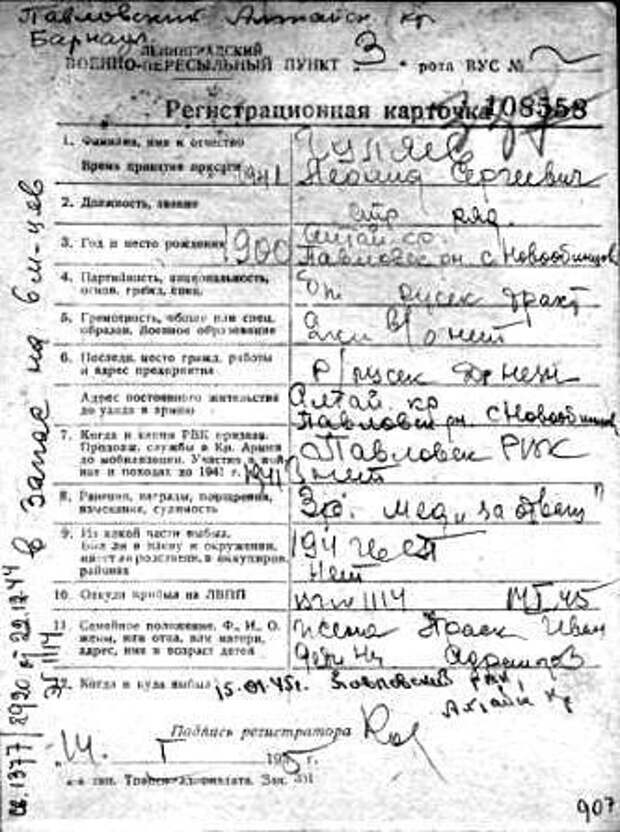 Павловский Алтайск. кр.
Барнаул.
ЛЕНИНГРАДСКИЙ
ВОЕННО-ПЕРЕСЫЛЬНЫЙ ПУНКТ 3 рота ВУС №
Регистрационная карточка 108558
1. Фамилия, имя и отчество
Время принятия присяги 1941 Леонид Сергеевич
2. Должность, звание стр ряд.
3. Год и место рождения 1900 Алтай кр.
Павловск рн с. Новообинцево
4. Партийность, национальность,
основ. гражд. спец. бп русск тракт
5. Грамотность, общее или спец.
образов. Военное образование 2 кл в/о нет
6. Последн. место гражд. работы
и адрес предприятия
Адрес постоянного жительства Алтай кр
до ухода в армию Павловск рн. с Новообинцев
7. Когда и каким РВК призван. Павловск РВК
Продолж. службы в Кр. Армии
до мобилизации. Участие в вой-
не и походах до 1941 г. 1941 нет
8. Ранения, награды, поощрения,
взыскания, судимость мед. "за отвагу"
9. Из какой части выбыл. 194
Был ли в плену и окружении,
имеет ли родствен. в оккупиров.
районах нет
10. Откуда прибыл на ЛВПП 1114
11. Семейное положение. Ф., И., О. жена Праск Иван
жены, или отца, или матери,
адрес, имя и возраст детей
12. Когда и куда выбыл 15.01.45г. Павловский РВК,
Алтайск кр
Подпись регистратора
"14" I 1945 г.
Зак. 351
907
в запас на 6 м-цев
св. 1377/8920 от 22.12.44
ЭГ 1114